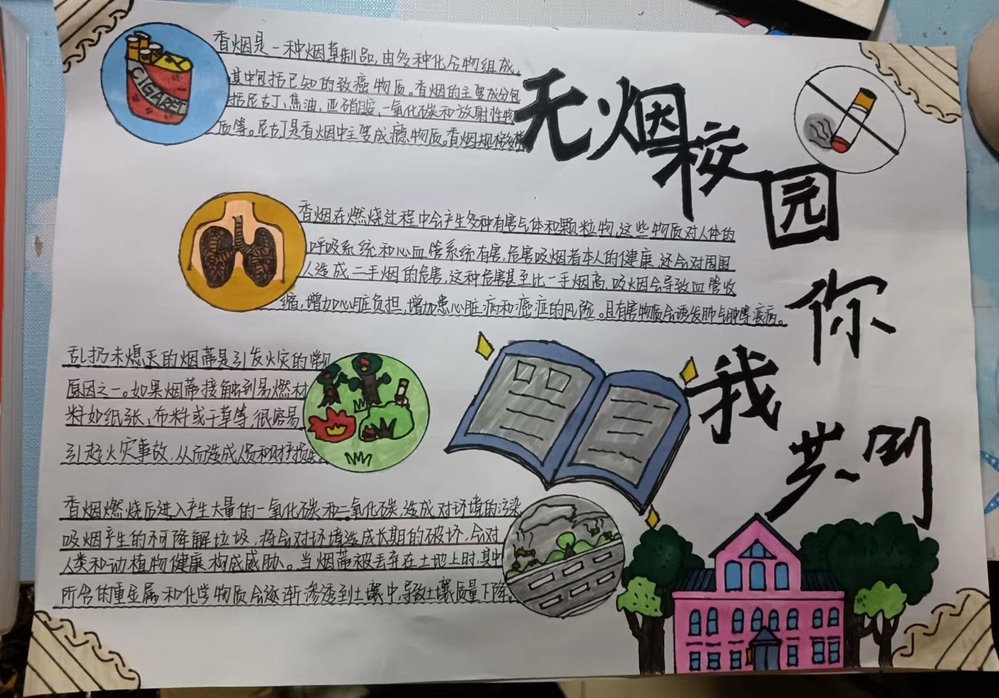 CIGARET
香烟是一种烟草制品,由多种化合物组成,
其中包括已知的致癌物质。香烟的主要成分包
括尼古丁、焦油、亚硝胺、一氧化碳和放射性物
质等。尼古丁是香烟中主要成瘾物质。香烟
无烟校园
你我共同
香烟在燃烧过程中会产生多种有害气体和颗粒物,这些物质对人体的
呼吸系统和心血管系统有害,危害吸烟者本人的健康,还会对周围
人造成二手烟的危害,这种危害甚至比一手烟高,吸烟会导致血管收
缩,增加心脏负担,增加患心脏病和癌症的风险。且有害物质会诱发肺气肿等疾病。
乱扔未熄灭的烟蒂是引发火灾的常见
原因之一。如果烟蒂接触到易燃材
料如纸张,布料或干草等,很容易
引起火灾事故,从而造成人伤和财产损失
香烟燃烧后进入产生大量的一氧化碳和二氧化碳,造成对环境的污染
吸烟产生的不可降解垃圾,将会对环境造成长期的破坏,会对
人类和动植物健康构成威胁。当烟蒂被丢弃在土地上时,其中
所含的重金属和化学物质会逐渐渗透到土壤中,导致土壤质量下降。